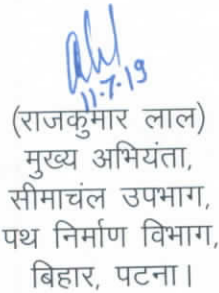 11-7-19
(राजकुमार लाल)
मुख्य अभियंता,
सीमाचंल उपभाग,
पथ निर्माण विभाग,
बिहार, पटना।